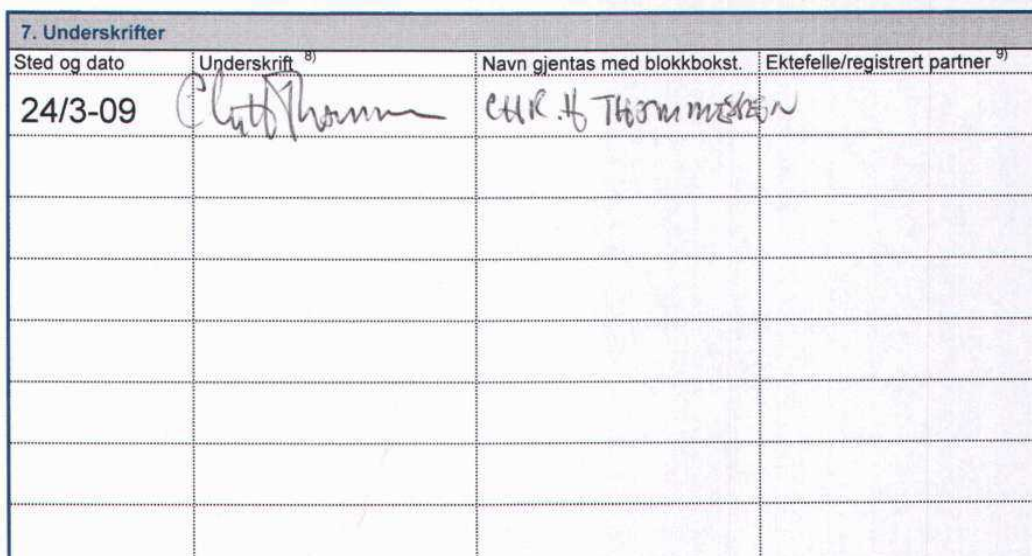 7. Underskrifter
Sted og dato Underskrift 8) Navn gjentas med blokkbokst. Ektefelle/registrert partner 9)
24/3-09 CHR. H THOMMESSEN